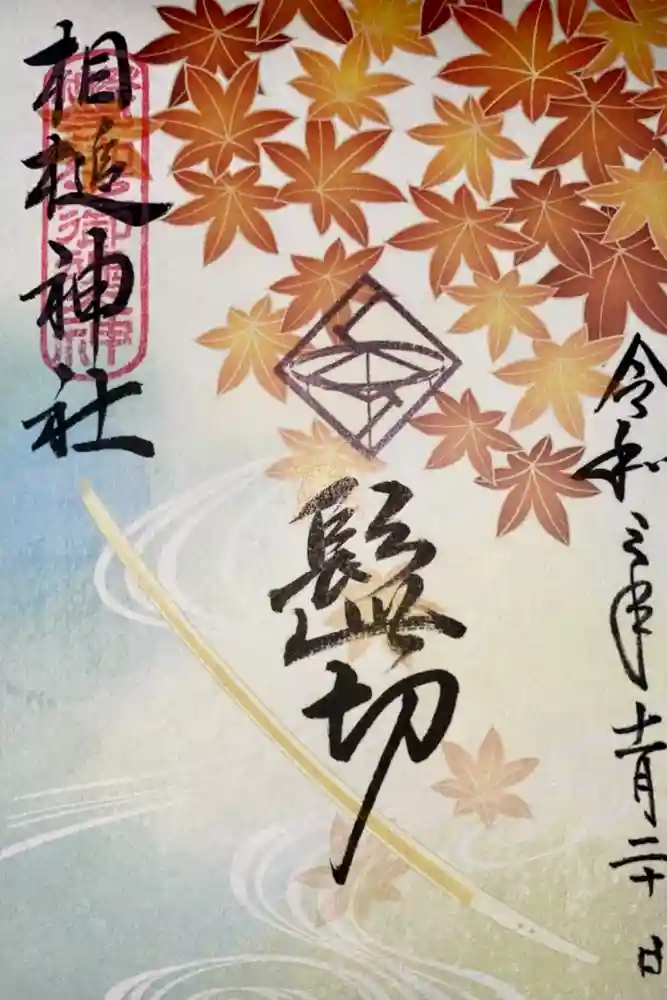 令和三年十一月二十日
髭切
相槌神社